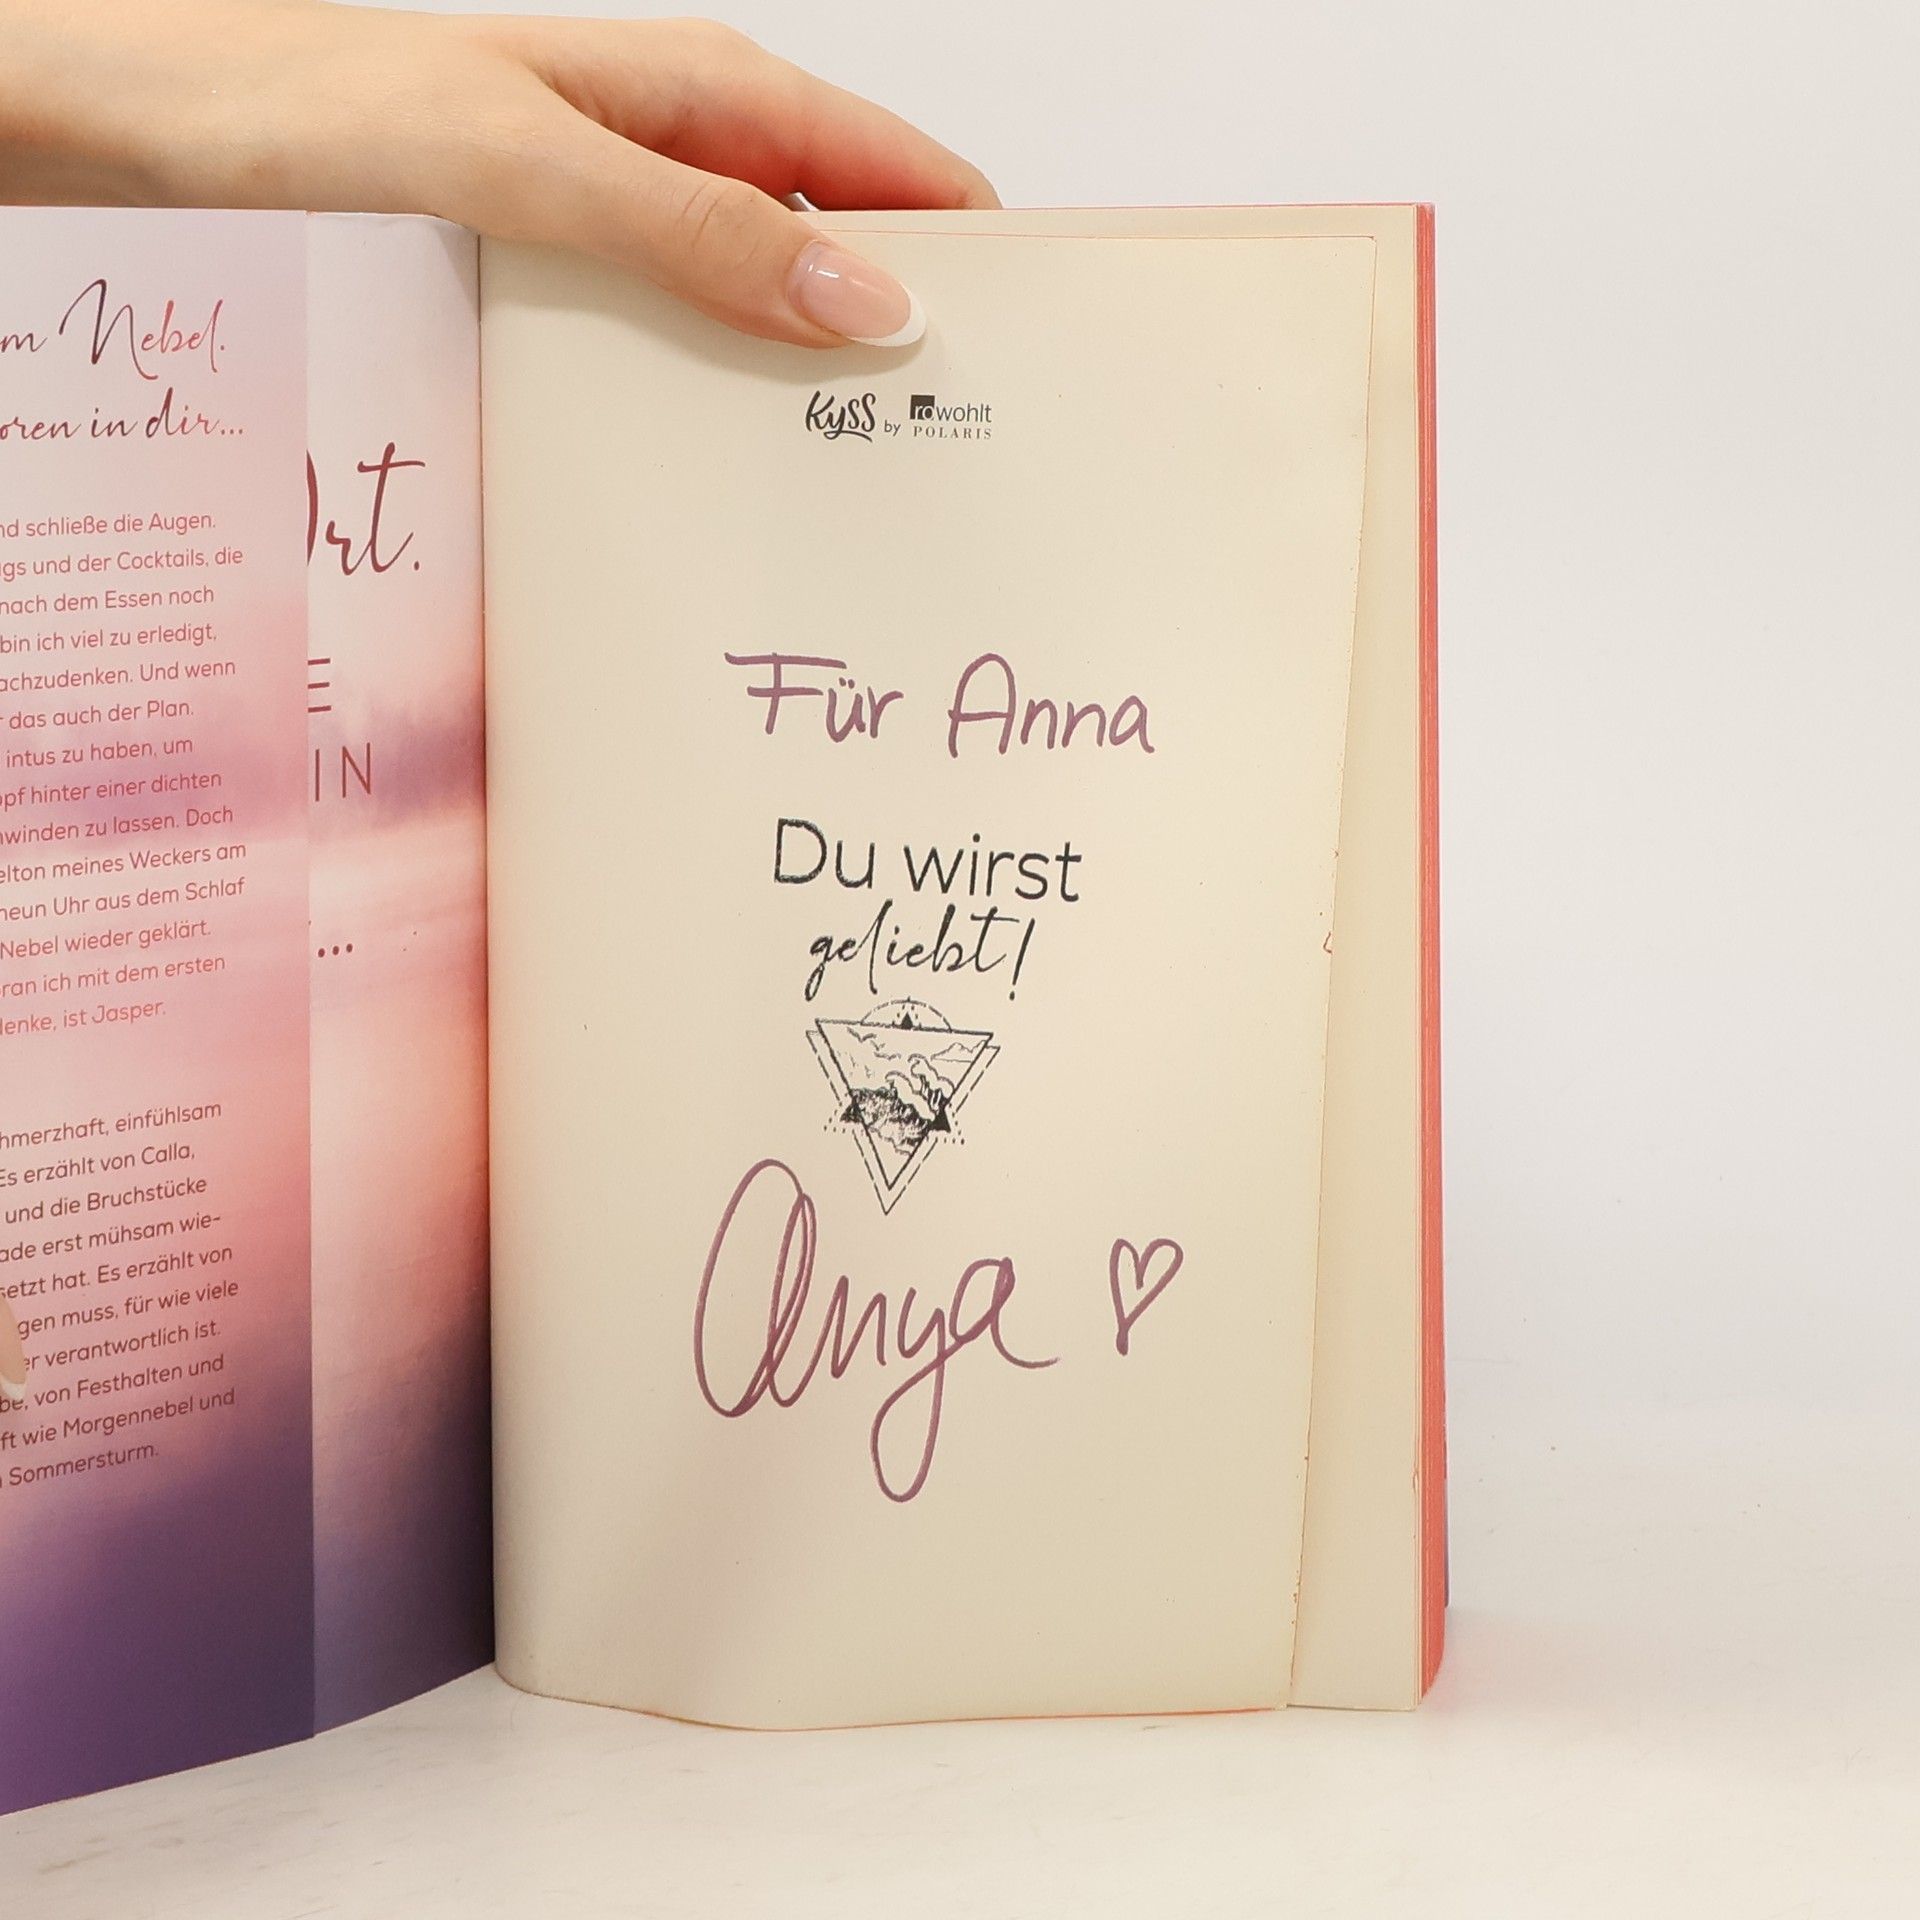 m Nebel.
oren in dir...
nd schließe die Augen.
gs und der Cocktails, die
nach dem Essen noch
bin ich viel zu erledigt,
achzudenken. Und wenn
das auch der Plan.
intus zu haben, um
opf hinter einer dichten
hwinden zu lassen. Doch
elton meines Weckers am
neun Uhr aus dem Schlaf
Nebel wieder geklärt.
ran ich mit dem ersten
denke, ist Jasper.
hmerzhaft, einfühlsam
Es erzählt von Calla,
und die Bruchstücke
ade erst mühsam wie-
setzt hat. Es erzählt von
gen muss, für wie viele
er verantwortlich ist.
be, von Festhalten und
ft wie Morgennebel und
Sommersturm.
Ort.
E
IN
...
KYSS by rowohlt
POLARIS
Für Anna
Du wirst
geliebt!
Anya